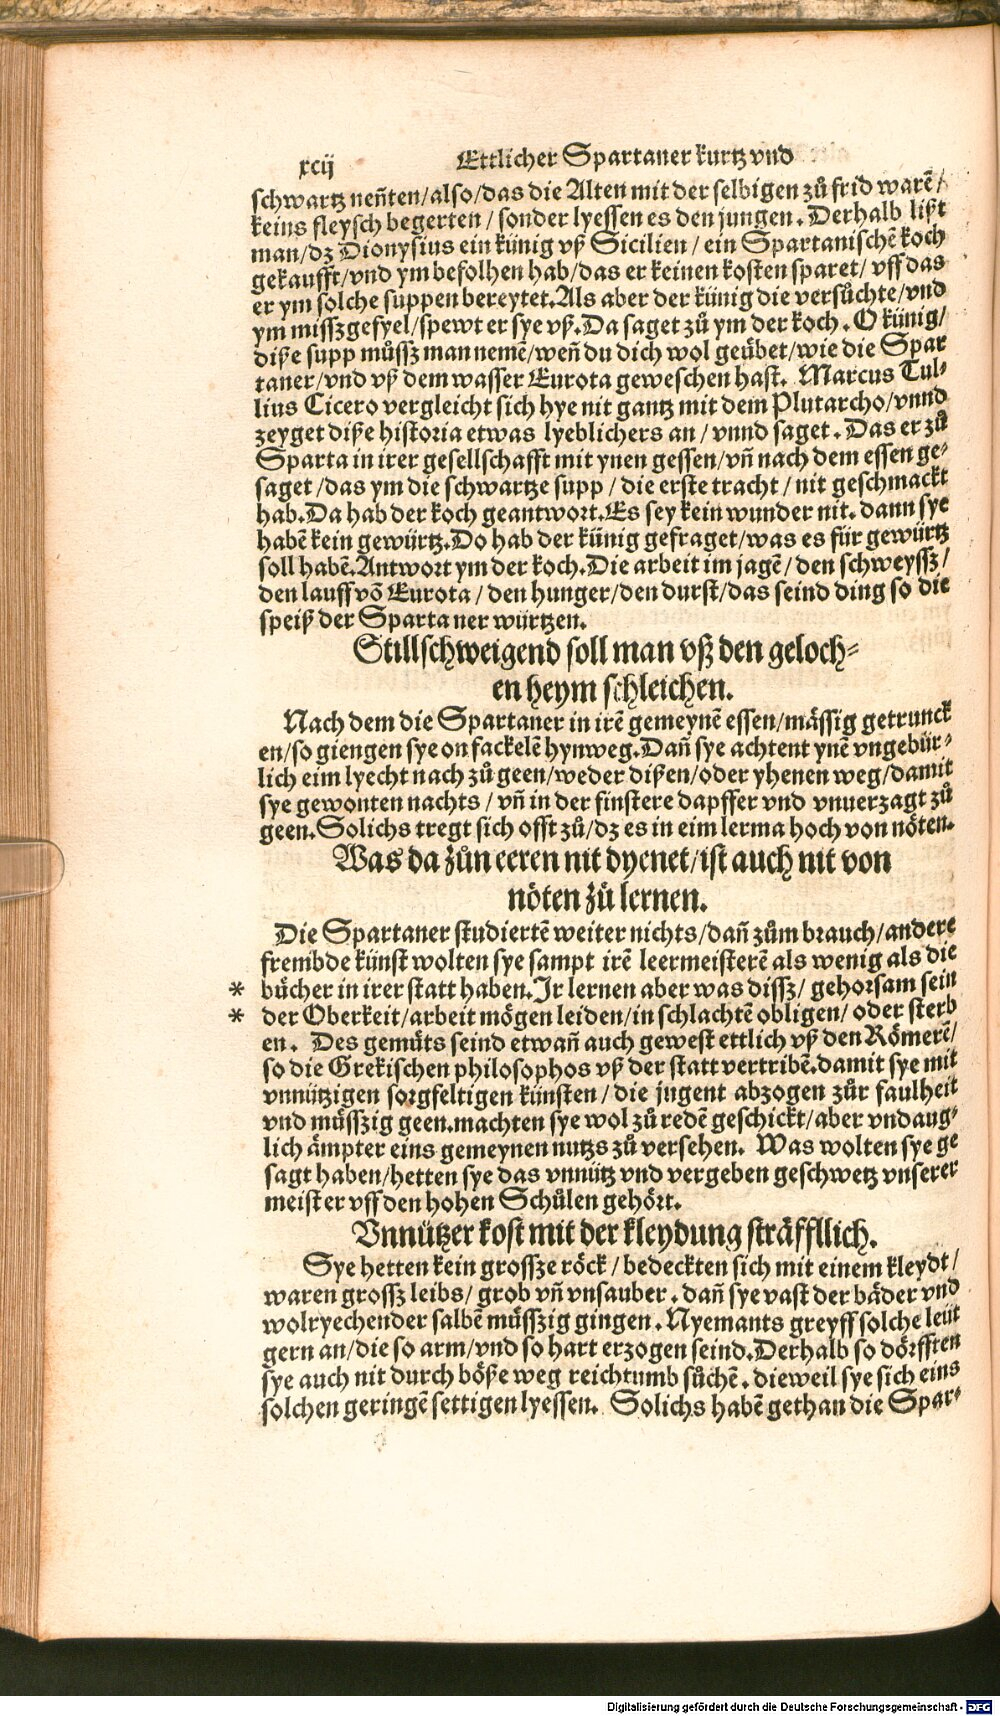 xcij Ettlicher Spartaner kurtz vnd
schwartz nen̄ten/also/das die Alten mit der selbigen zů frid warẽ/
keins fleysch begerten/ sonder lyessen es den jungen. Derhalb lißt
man/dz Dionysius ein künig vß Sicilien/ ein Spartanischẽ koch
gekaufft/vnd ym befolhen hab/das er keinen kosten sparet/ vff das
er ym solche suppen bereytet. Als aber der künig die versůchte/vnd
ym misszgefyel/spewt er sye vß. Da saget zů ym der koch. O künig/
diße supp můssz man nemẽ/wen̄ du dich wol geübet/wie die Spar
taner/vnd vß dem wasser Eurota geweschen hast. Marcus Tul⸗
lius Cicero vergleicht sich hye nit gantz mit dem Plutarcho/vnnd
zeyget diße historia etwas lyeblichers an/ vnnd saget. Das er zů
Sparta in irer gesellschafft mit ynen gessen/vn̄ nach dem essen ge⸗
saget/das ym die schwartze supp/ die erste tracht/ nit geschmackt
hab. Da hab der koch geantwort. Es sey kein wunder nit. dann sye
habẽ kein gewürtz. Do hab der künig gefraget/was es für gewürtz
soll habẽ. Antwort ym der koch. Die arbeit im jagẽ/ den schweyssz/
den lauff võ Eurota/ den hunger/den durst/das seind ding so die
speiß der Spartaner würtzen.
Stillschweigend soll man vß den geloch⸗
en heym schleichen.
Nach dem die Spartaner in irẽ gemeynẽ essen/mässig getrunck
en/so giengen sye on fackelẽ hynweg. Dan̄ sye achtent ynẽ vngebür⸗
lich eim lyecht nach zů geen/weder dißen/oder yhenen weg/damit
sye gewonten nachts/ vn̄ in der finstere dapffer vnd vnuerzagt zů
geen. Solichs tregt sich offt zů/dz es in eim lerma hoch von nöten.
Was da zůn eeren nit dyenet/ist auch nit von
nöten zů lernen.
Die Spartaner studiertẽ weiter nichts/dan̄ zům brauch/andere
frembde künst wolten sye sampt irẽ leermeisterẽ als wenig als die
* bücher in irer statt haben. Ir lernen aber was dissz/ gehorsam sein
* der Oberkeit/arbeit mögen leiden/in schlachtẽ obligen/ oder sterb
en. Des gemüts seind etwan̄ auch gewest ettlich vß den Römerẽ/
so die Grekischen philosophos vß der statt vertribẽ. damit sye mit
vnnützigen sorgfeltigen künsten/ die jugent abzogen zůr faulheit
vnd müsszig geen. machten sye wol zů redẽ geschickt/aber vndaug⸗
lich ämpter eins gemeynen nutzs zů versehen. Was wolten sye ge
sagt haben/hetten sye das vnnütz vnd vergeben geschwetz vnserer
meister vff den hohen Schůlen gehört.
Vnnützer kost mit der kleydung sträffllich.
Sye hetten kein grossze röck/ bedeckten sich mit einem kleydt/
waren grossz leibs/ grob vn̄ vnsauber. dan̄ sye vast der bäder vnd
wolryechender salbẽ müsszig gingen. Nyemants greyff solche leüt
gern an/die so arm/vnd so hart erzogen seind. Derhalb so dörfften
sye auch nit durch böße weg reichtumb sůchẽ. dieweil sye sich eins
solchen geringẽ settigen lyessen. Solichs habẽ gethan die Spar⸗
Digitalisierung gefördert durch die Deutsche Forschungsgemeinschaft - DFG